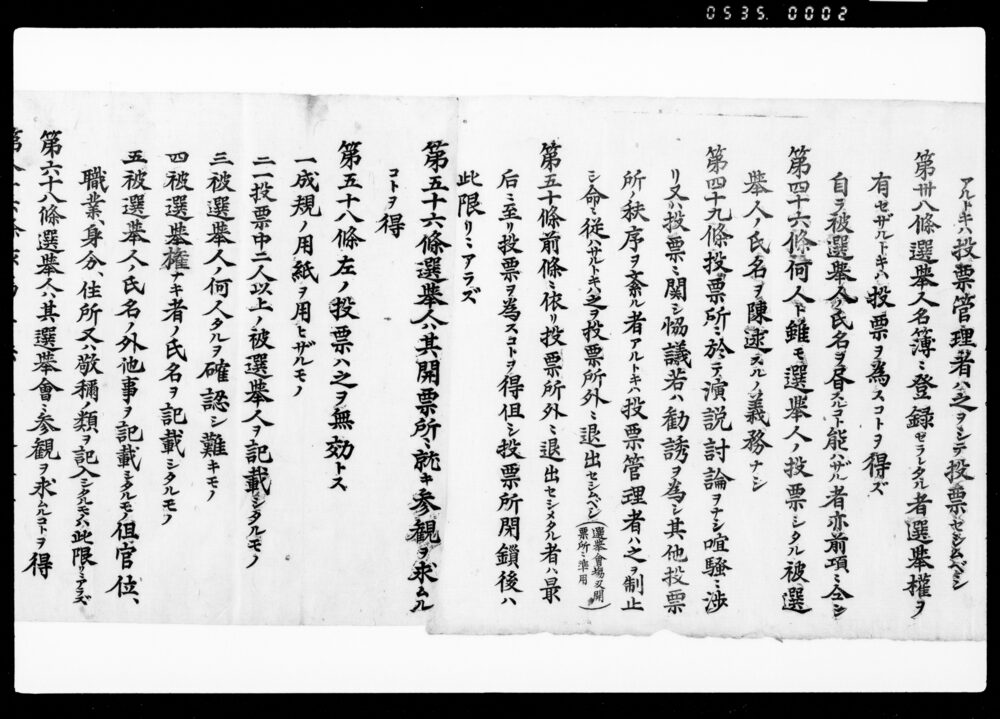 0535. 0002
アルトキハ投票管理者ハ之ヲシテ投票セシムベシ
第卅八條選挙人名簿ニ登録セラレタル者選挙權ヲ
有セザルトキハ投票ヲ為スコトヲ得ズ
自ラ被選挙人ノ氏名ヲ書スルコト能ハザル者亦前項ニ仝シ
第四十六條何人ト雖モ選挙人ノ投票シタル被選
挙人ノ氏名ヲ陳述スルノ義務ナシ
第四十九條投票所ニ於テ演説討論ヲナシ喧騒ニ渉
リ又ハ投票ニ関シ恊議若ハ勧誘ヲ為シ其他投票
所秩序ヲ紊ル者アルトキハ投票管理者ハ之ヲ制止
シ命ニ従ハザルトキハ之ヲ投票所外ニ退出セシムベシ(選挙會場又開票所ニ準用)
第五十條前條ニ依リ投票所外ニ退出セシメタル者ハ最
后ニ至リ投票ヲ為スコトヲ得但シ投票所閉鎖後ハ
此限リニアラズ
第五十六條選挙人ハ其開票所ニ就キ参観ヲ求ムル
コトヲ得
第五十八條左ノ投票ハ之ヲ無効トス
一成規ノ用紙ヲ用ヒザルモノ
二一投票中二人以上ノ被選挙人ヲ記載シタルモノ
三被選挙人ノ何人タルヲ確認シ難キモノ
四被選挙權ナキ者ノ氏名ヲ記載シタルモノ
五被選挙人ノ氏名ノ外他事ヲ記載シタルモノ但官位、
職業、身分、住所又ハ敬稱ノ類ヲ記入シタルモノハ此限リニアラズ
第六十八條選挙人ハ其選挙會ニ参観ヲ求ムルコトヲ得